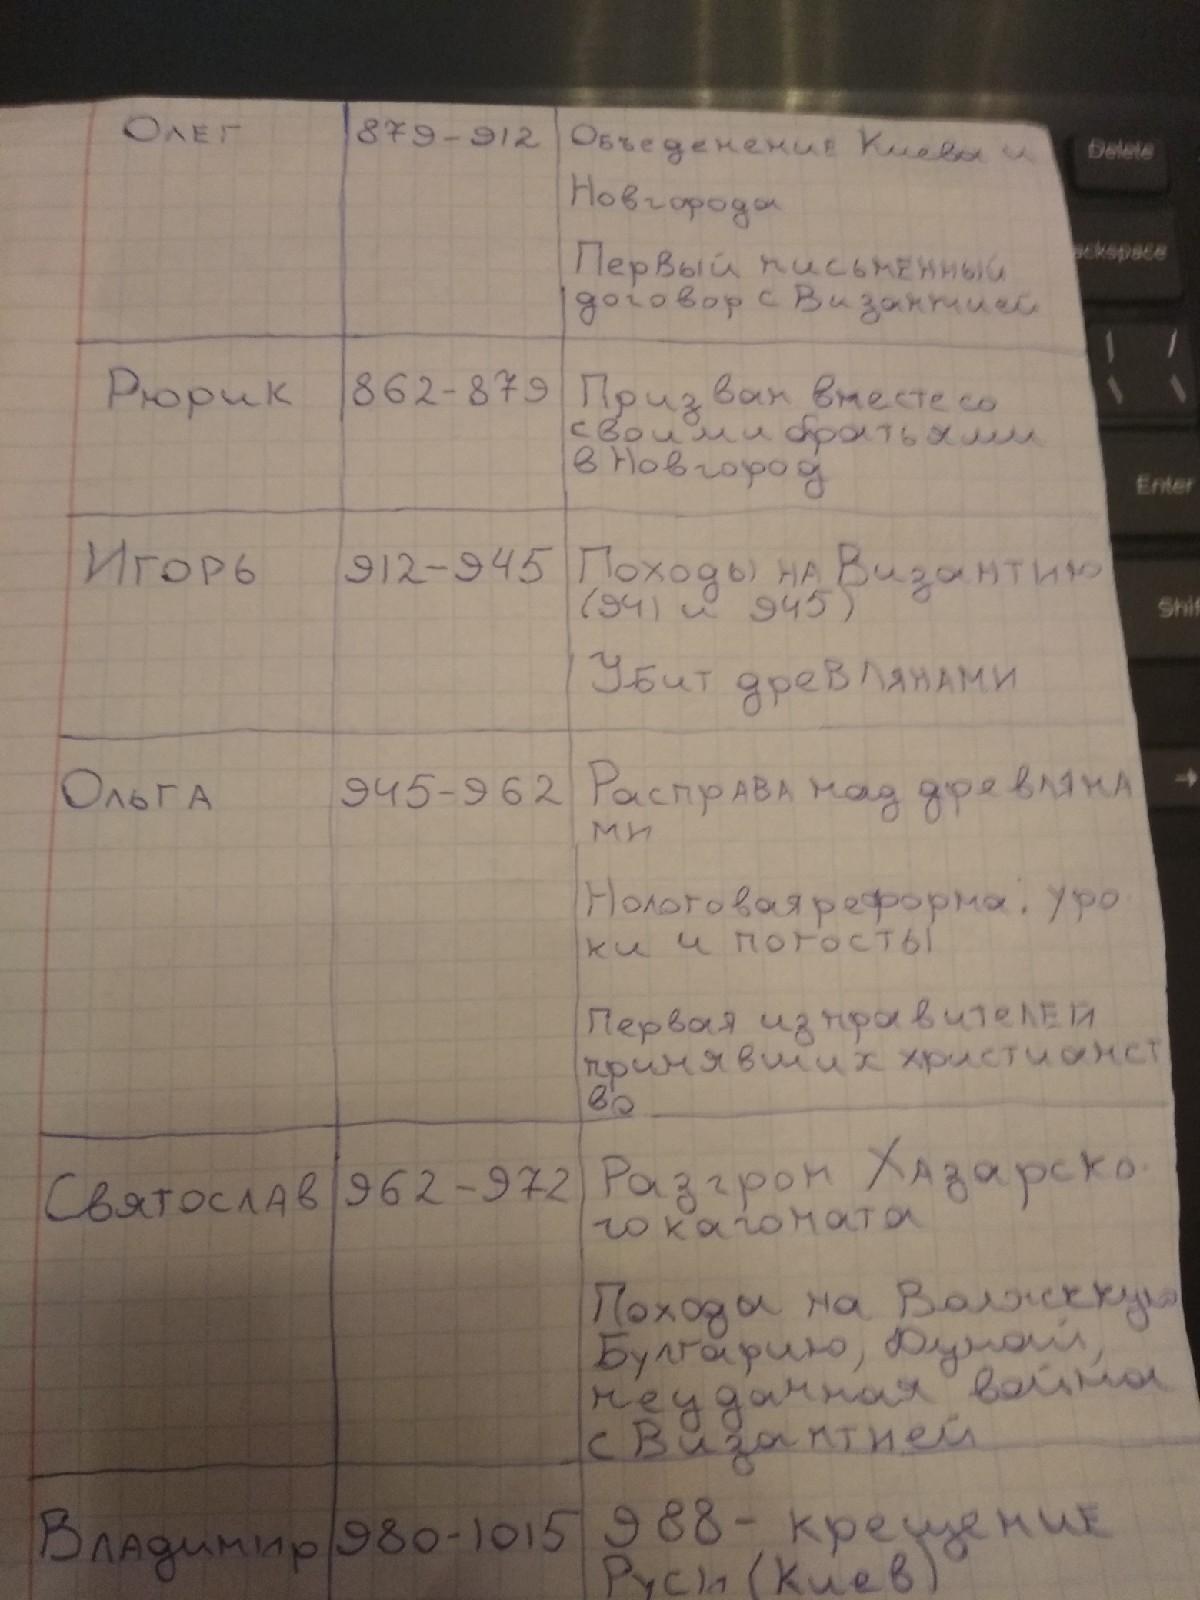 Delete
ackspace
Enter
Shif
Олег 879-912 Объеденение Киева и
Новгорода
Первый письменный
договор с Византией
Рюрик 862-879 Призван вместе со
своими братьями
в Новгород
Игорь 912-945 Походы на Византию
(941 и 945)
Убит древлянами
Ольга 945-962 Расправа над древляна
ми
Нологовая реформа: уро
ки и погосты
Первая из правителей
принявших христианст
во
Святослав 962-972 Разгром Хазарско-
го кагоната
Походы на Волжккую
Булгарию, Дунай,
неудачная война
с Византией
Владимир 980-1015 988- крещение
Руси (Киев)